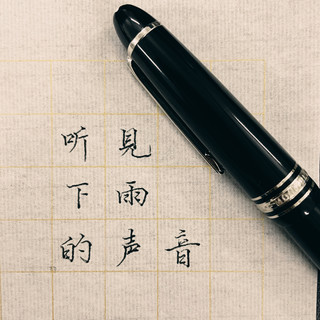 听見
下雨
的声音